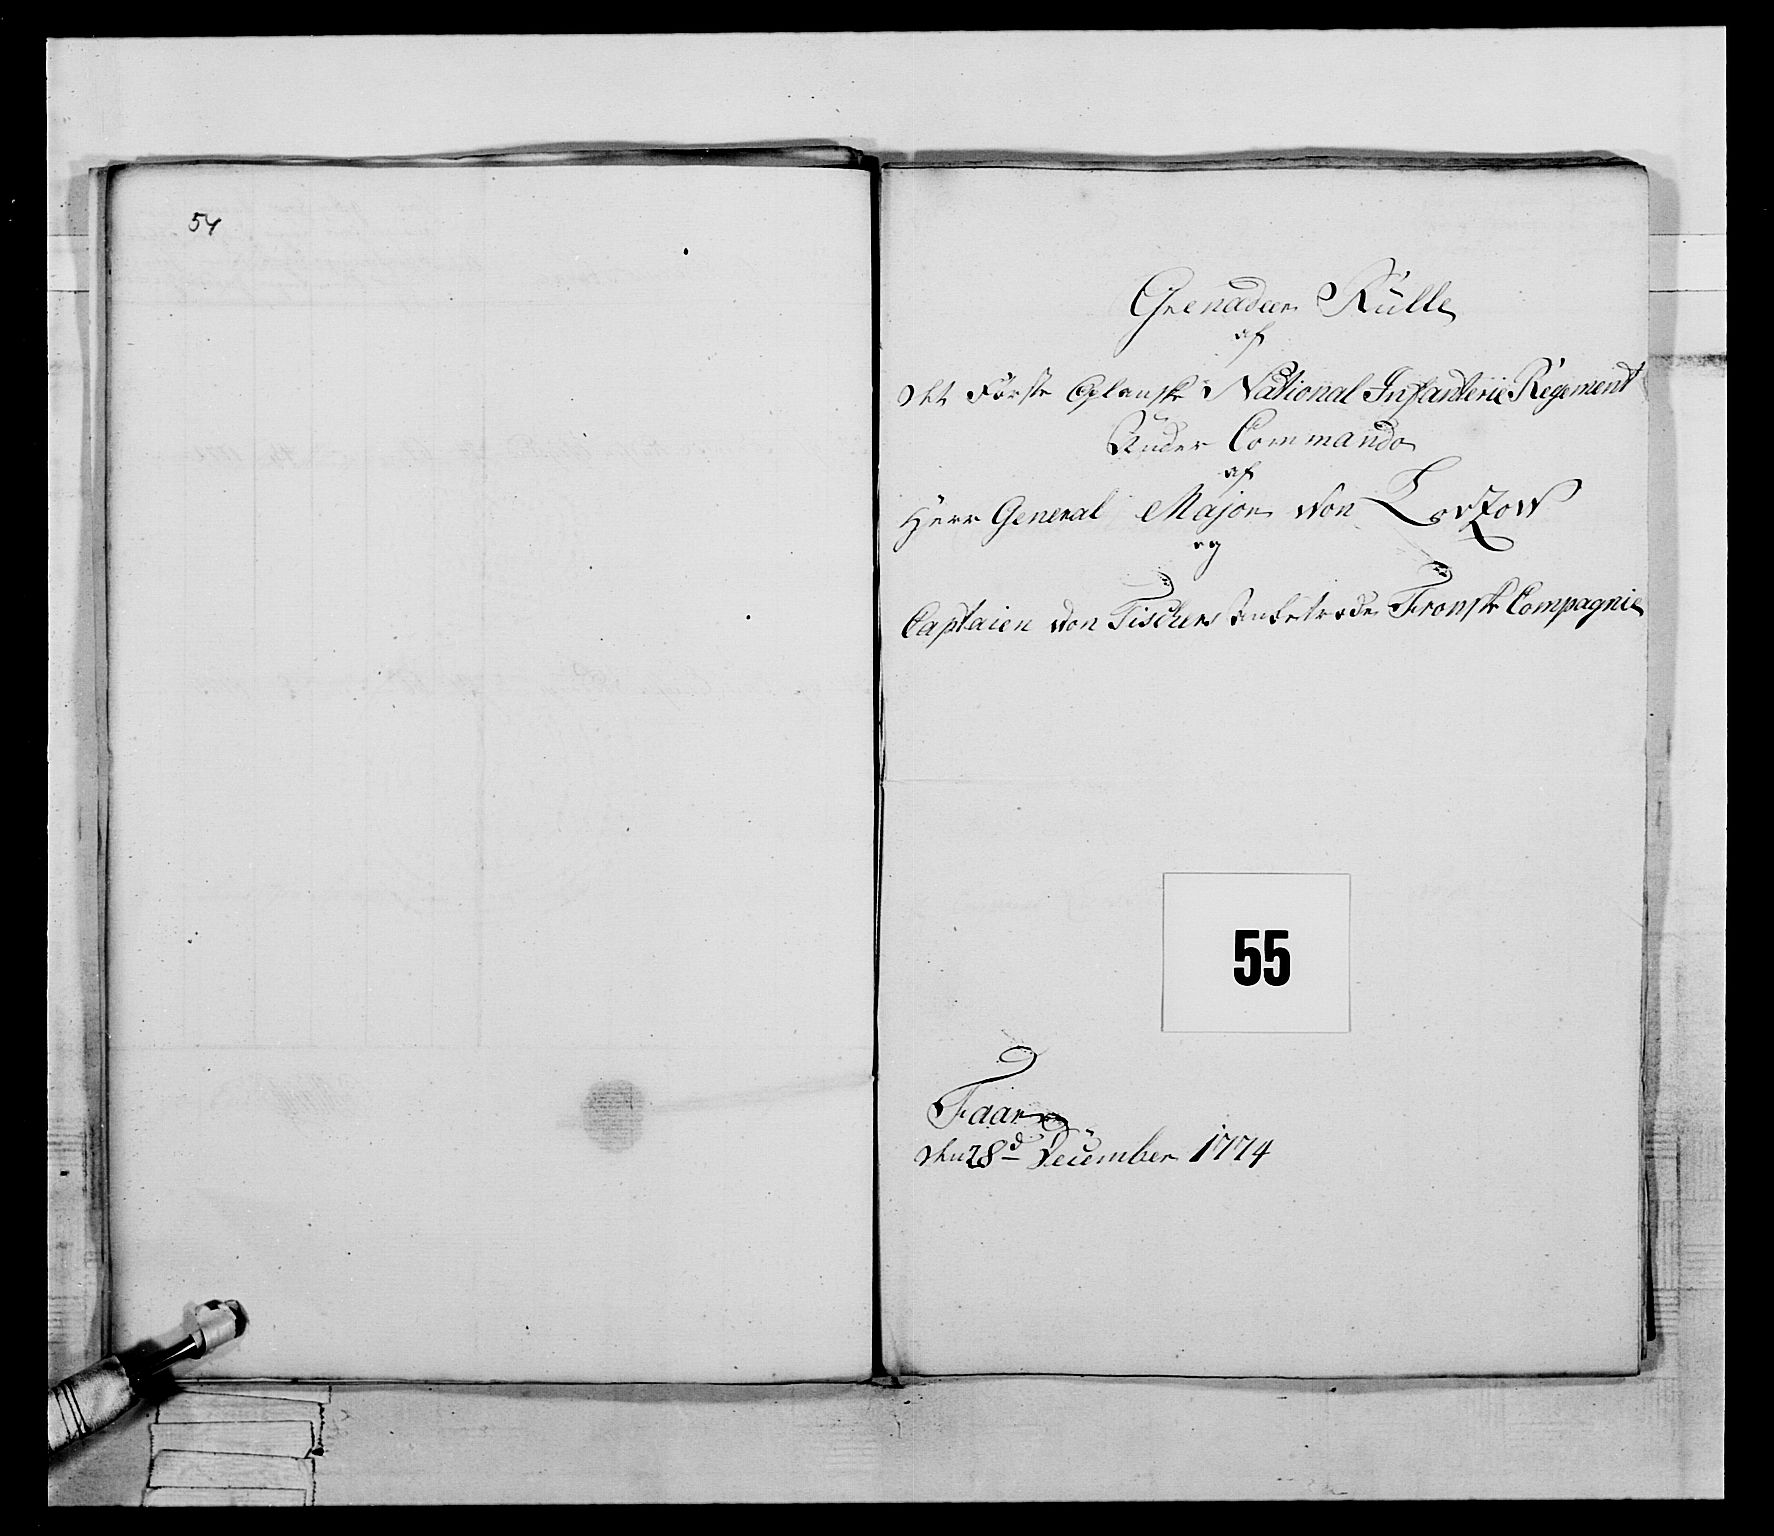 54
Grenadeer Rülle
af
det Förste Oplansk National Infanterie Regement
Under Commando
af
Herr General Major von Lowzow
og
Captaien von Fischers Tronsk Compagnie
55
Faar
den 28d December 1774